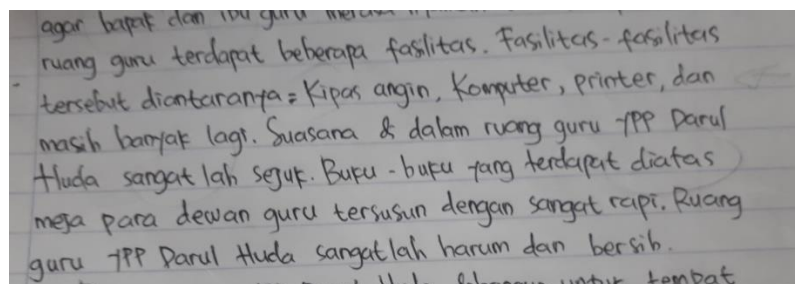 agar bapak dan ibu guru merasa
ruang guru terdapat beberapa fasilitas. Fasilitas-fasilitas
tersebut diantaranya = Kipas angin, Komputer, printer, dan
masih banyak lagi. Suasana di dalam ruang guru YPP Darul
Huda sangat lah sejuk. Buku-buku yang terdapat diatas
meja para dewan guru tersusun dengan sangat rapi. Ruang
guru YPP Darul Huda sangatlah harum dan bersih.
untuk tempat